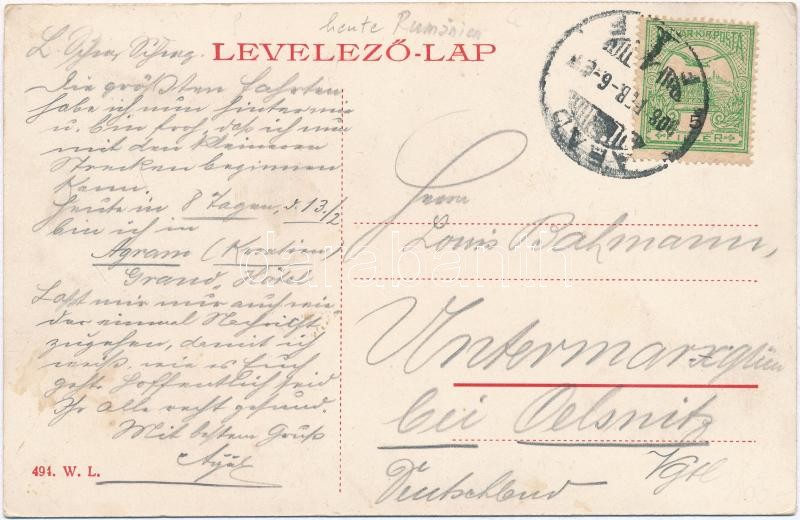 heute Rumänien
LEVELEZŐ-LAP
L. Schw. Schwg.
Die größten Fahrten
habe ich nun hinter mir
u. bin froh, daß ich nun
mit den kleineren
Strecken beginnen
kann.
Heute in 8 Tagen, d. 13./2
bin ich in
Agram (Kroatien)
Grand Hôtel
Laßt mir nur auch wie-
der einmal Nachricht
zugehen, damit ich
weiß, wie es Euch
geht. Hoffentlich seid
Ihr alle recht gesund.
Mit bestem Gruß
494. W. L.
ARAD
908 FEB. -6
MAGYAR KIR. POSTA
5
FILLÉR
Herrn
Louis Bahmann,
Untermarxgrün
bei Oelsnitz
Vgtl
Deutschland
darabanth